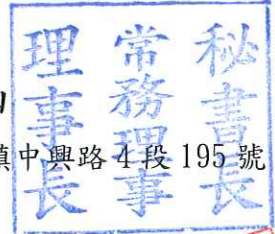 秘書長
常務理事
理事長
鎮中興路4段195號